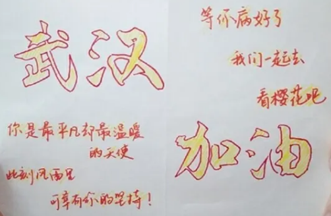 武汉
你是最平凡却最温暖
的天使
此刻风雨里
可幸有你的坚持！
等你病好了
我们一起去
看樱花吧
加油